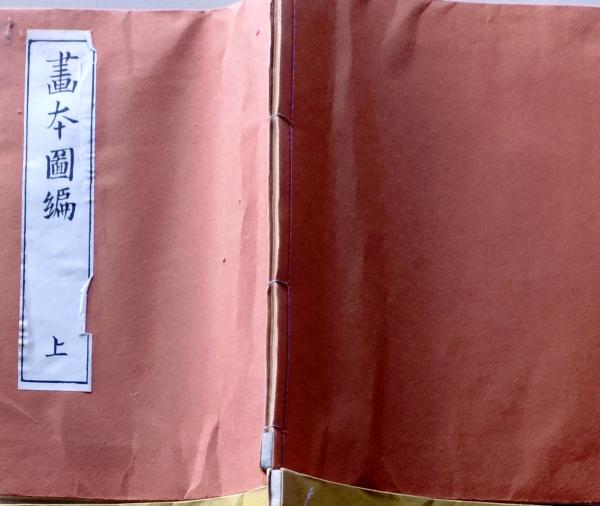 畫本圖編
上